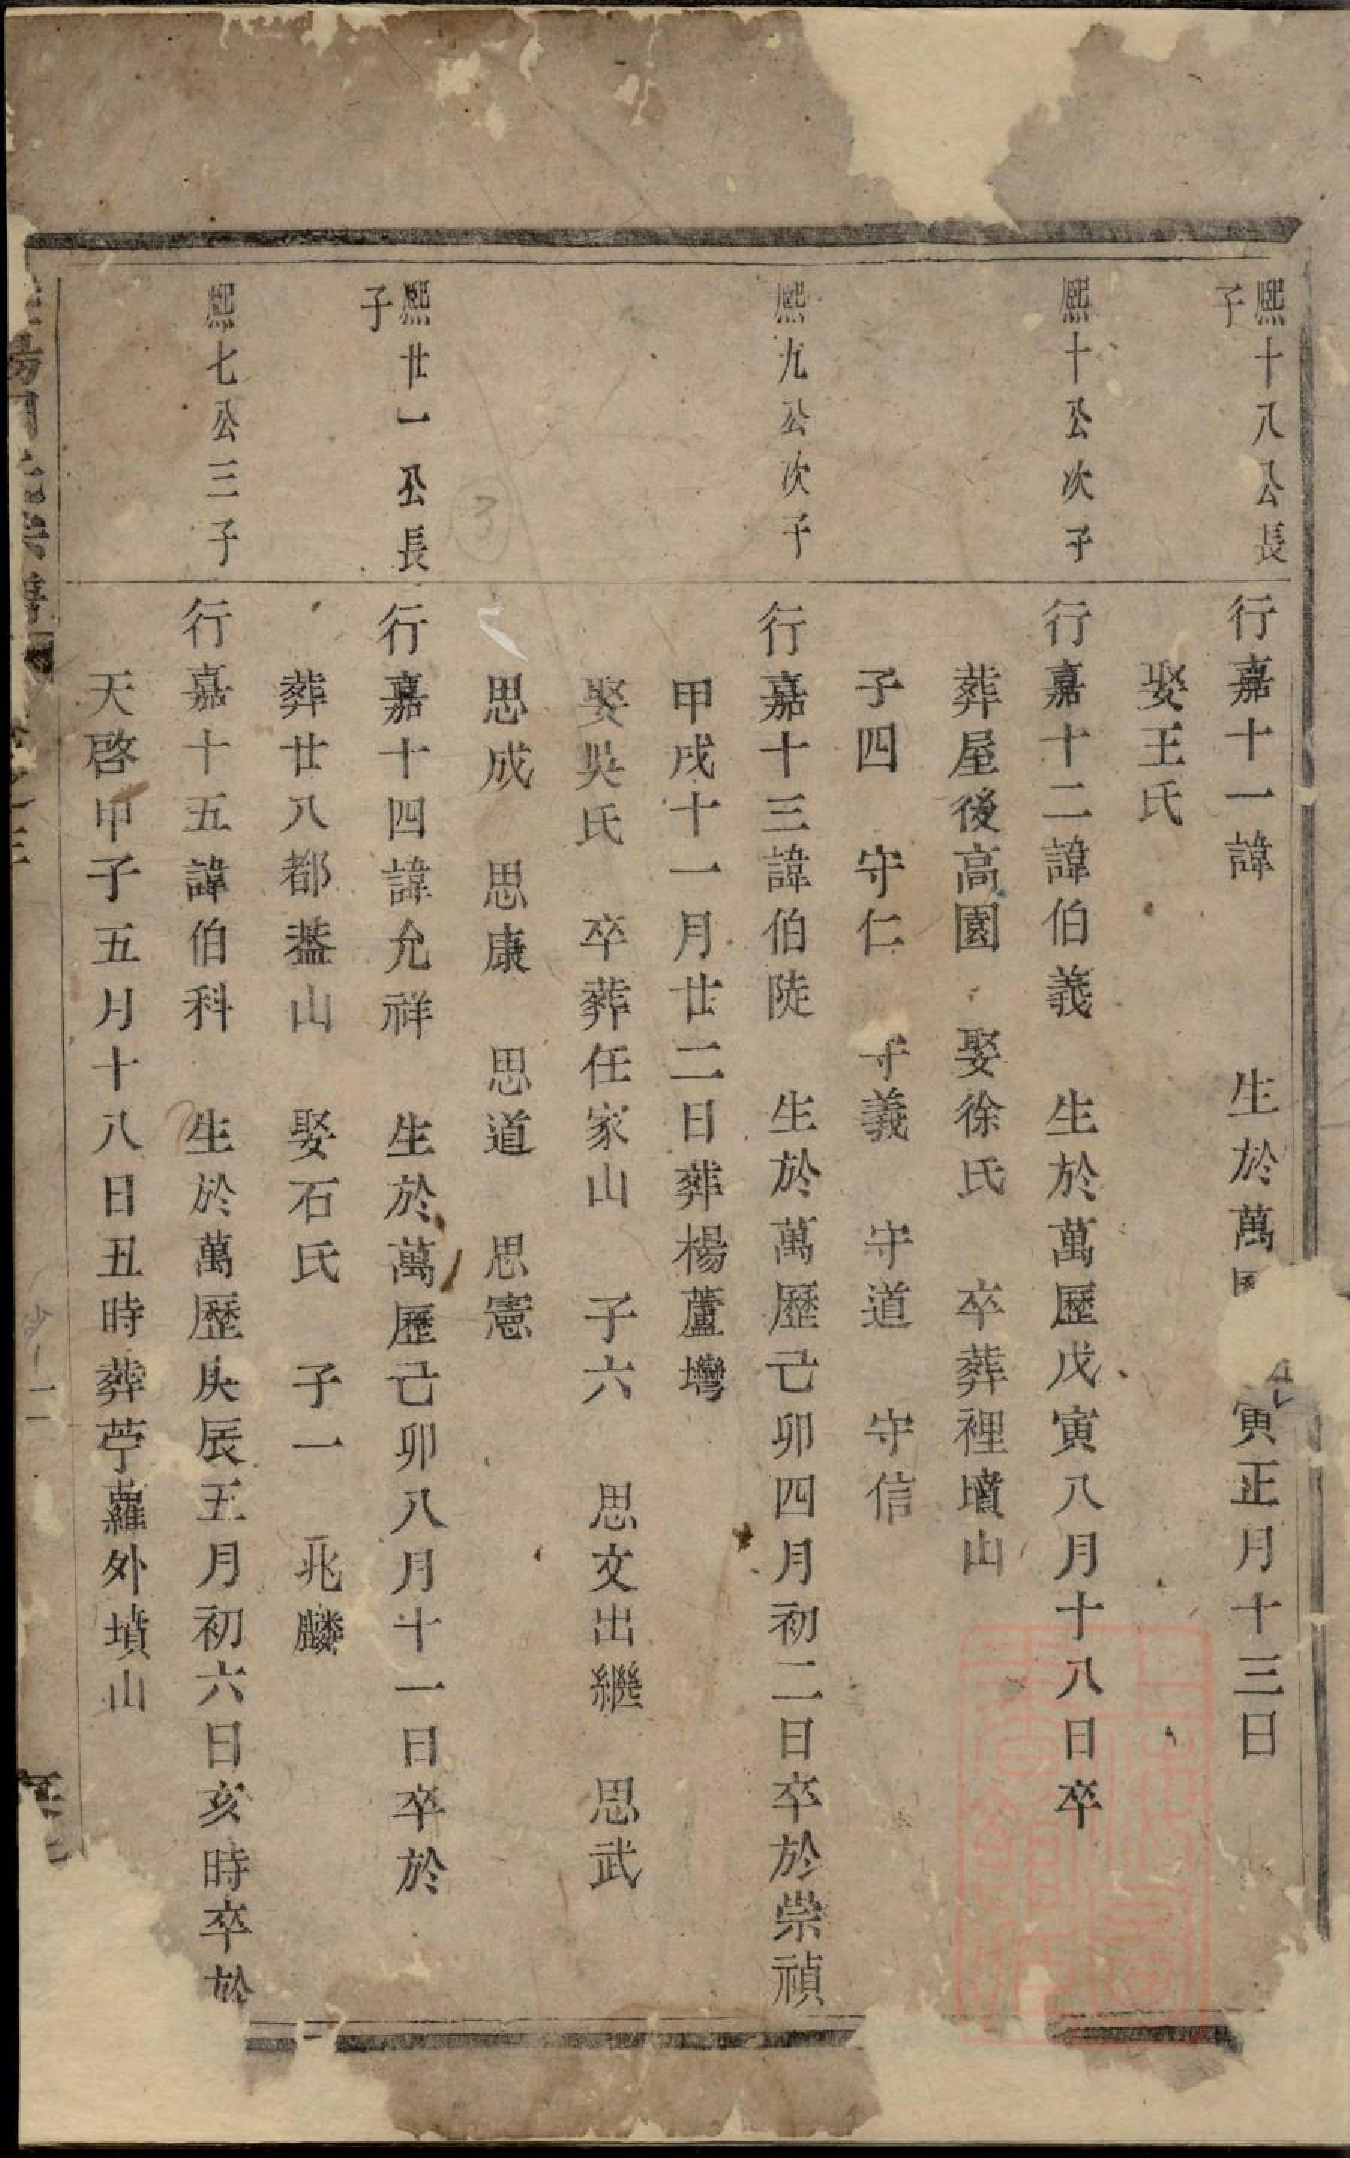 熈十八公長
子
行嘉十一諱　　　生於萬　　寅正月十三日
娶王氏
熈十公次子
行嘉十二諱伯義　生於萬歷戊寅八月十八日卒
葬屋後高園　娶徐氏　卒葬裡墳山
子四　守仁　守義　守道　守信
熈九公次子
行嘉十三諱伯陡　生於萬歷己卯四月初二日卒於崇禎
甲戌十一月廿二日葬楊蘆灣
娶吳氏　卒葬任家山　子六　思文出繼　思武
思成　思康　思道　思憲
熈廿一公長
子
行嘉十四諱允祥　生於萬歷己卯八月十一日卒於
葬廿八都葢山　娶石氏　子一　兆麟
熈七公三子
行嘉十五諱伯科　生於萬歷庚辰五月初六日亥時卒於
天啓甲子五月十八日丑時葬苧蘿外墳山